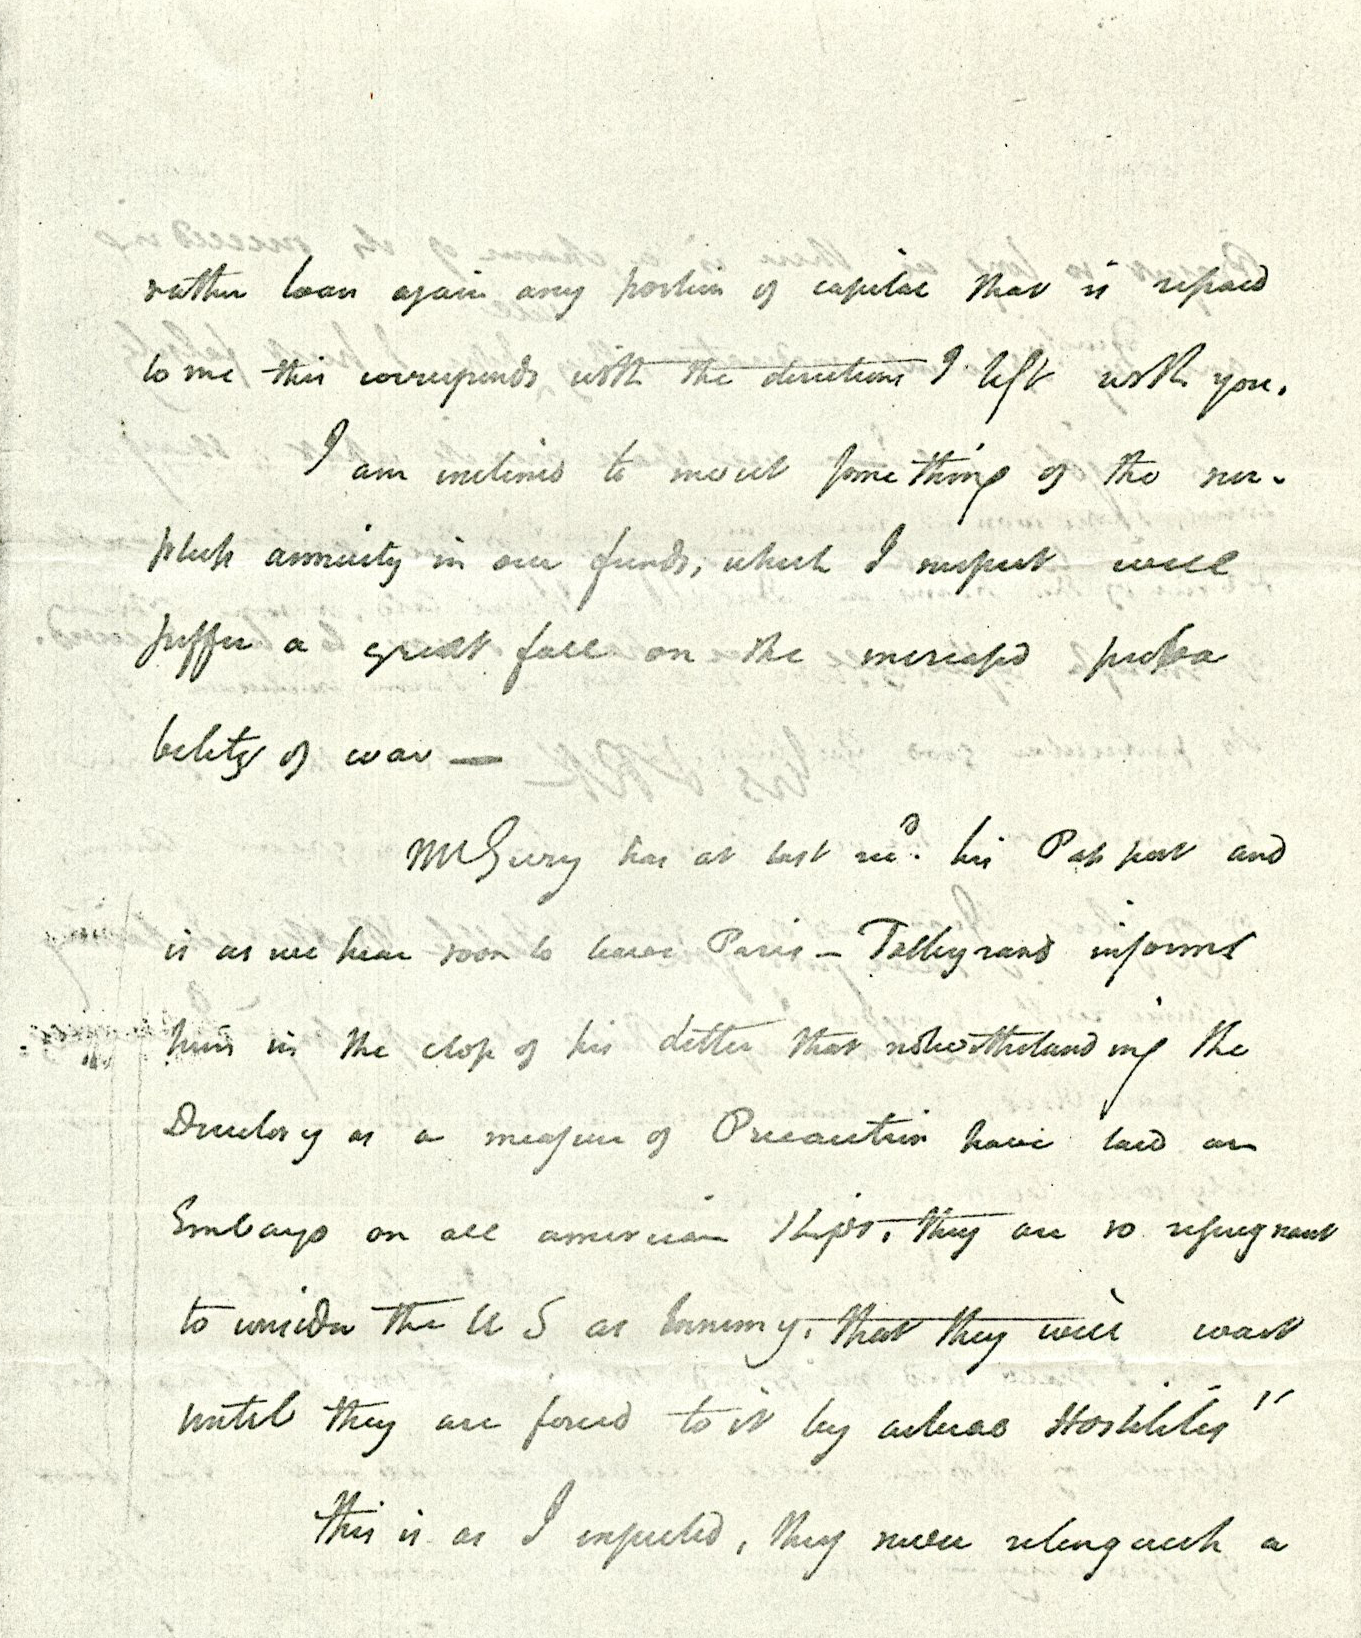 rather loan again any portion of capital that is repaid
to me this corresponds with the directions I left with you.
I am inclined to invest something of the sur-
pluss annuity in our funds, which I suspect will
suffer a great fall on the increased proba
bility of war —
Mr Gerry has at last recd. his Passport and
is as we hear soon to leave Paris — Talleyrand informs
him in the close of his letter that notwithstanding the
Directory as a measure of Precaution have laid an
Embargo on all american Ships, they are so repugnant
to consider the U S as Enemy, that they will wait
until they are forced to it by actual Hostilities"
this is as I expected, they never relinquish a